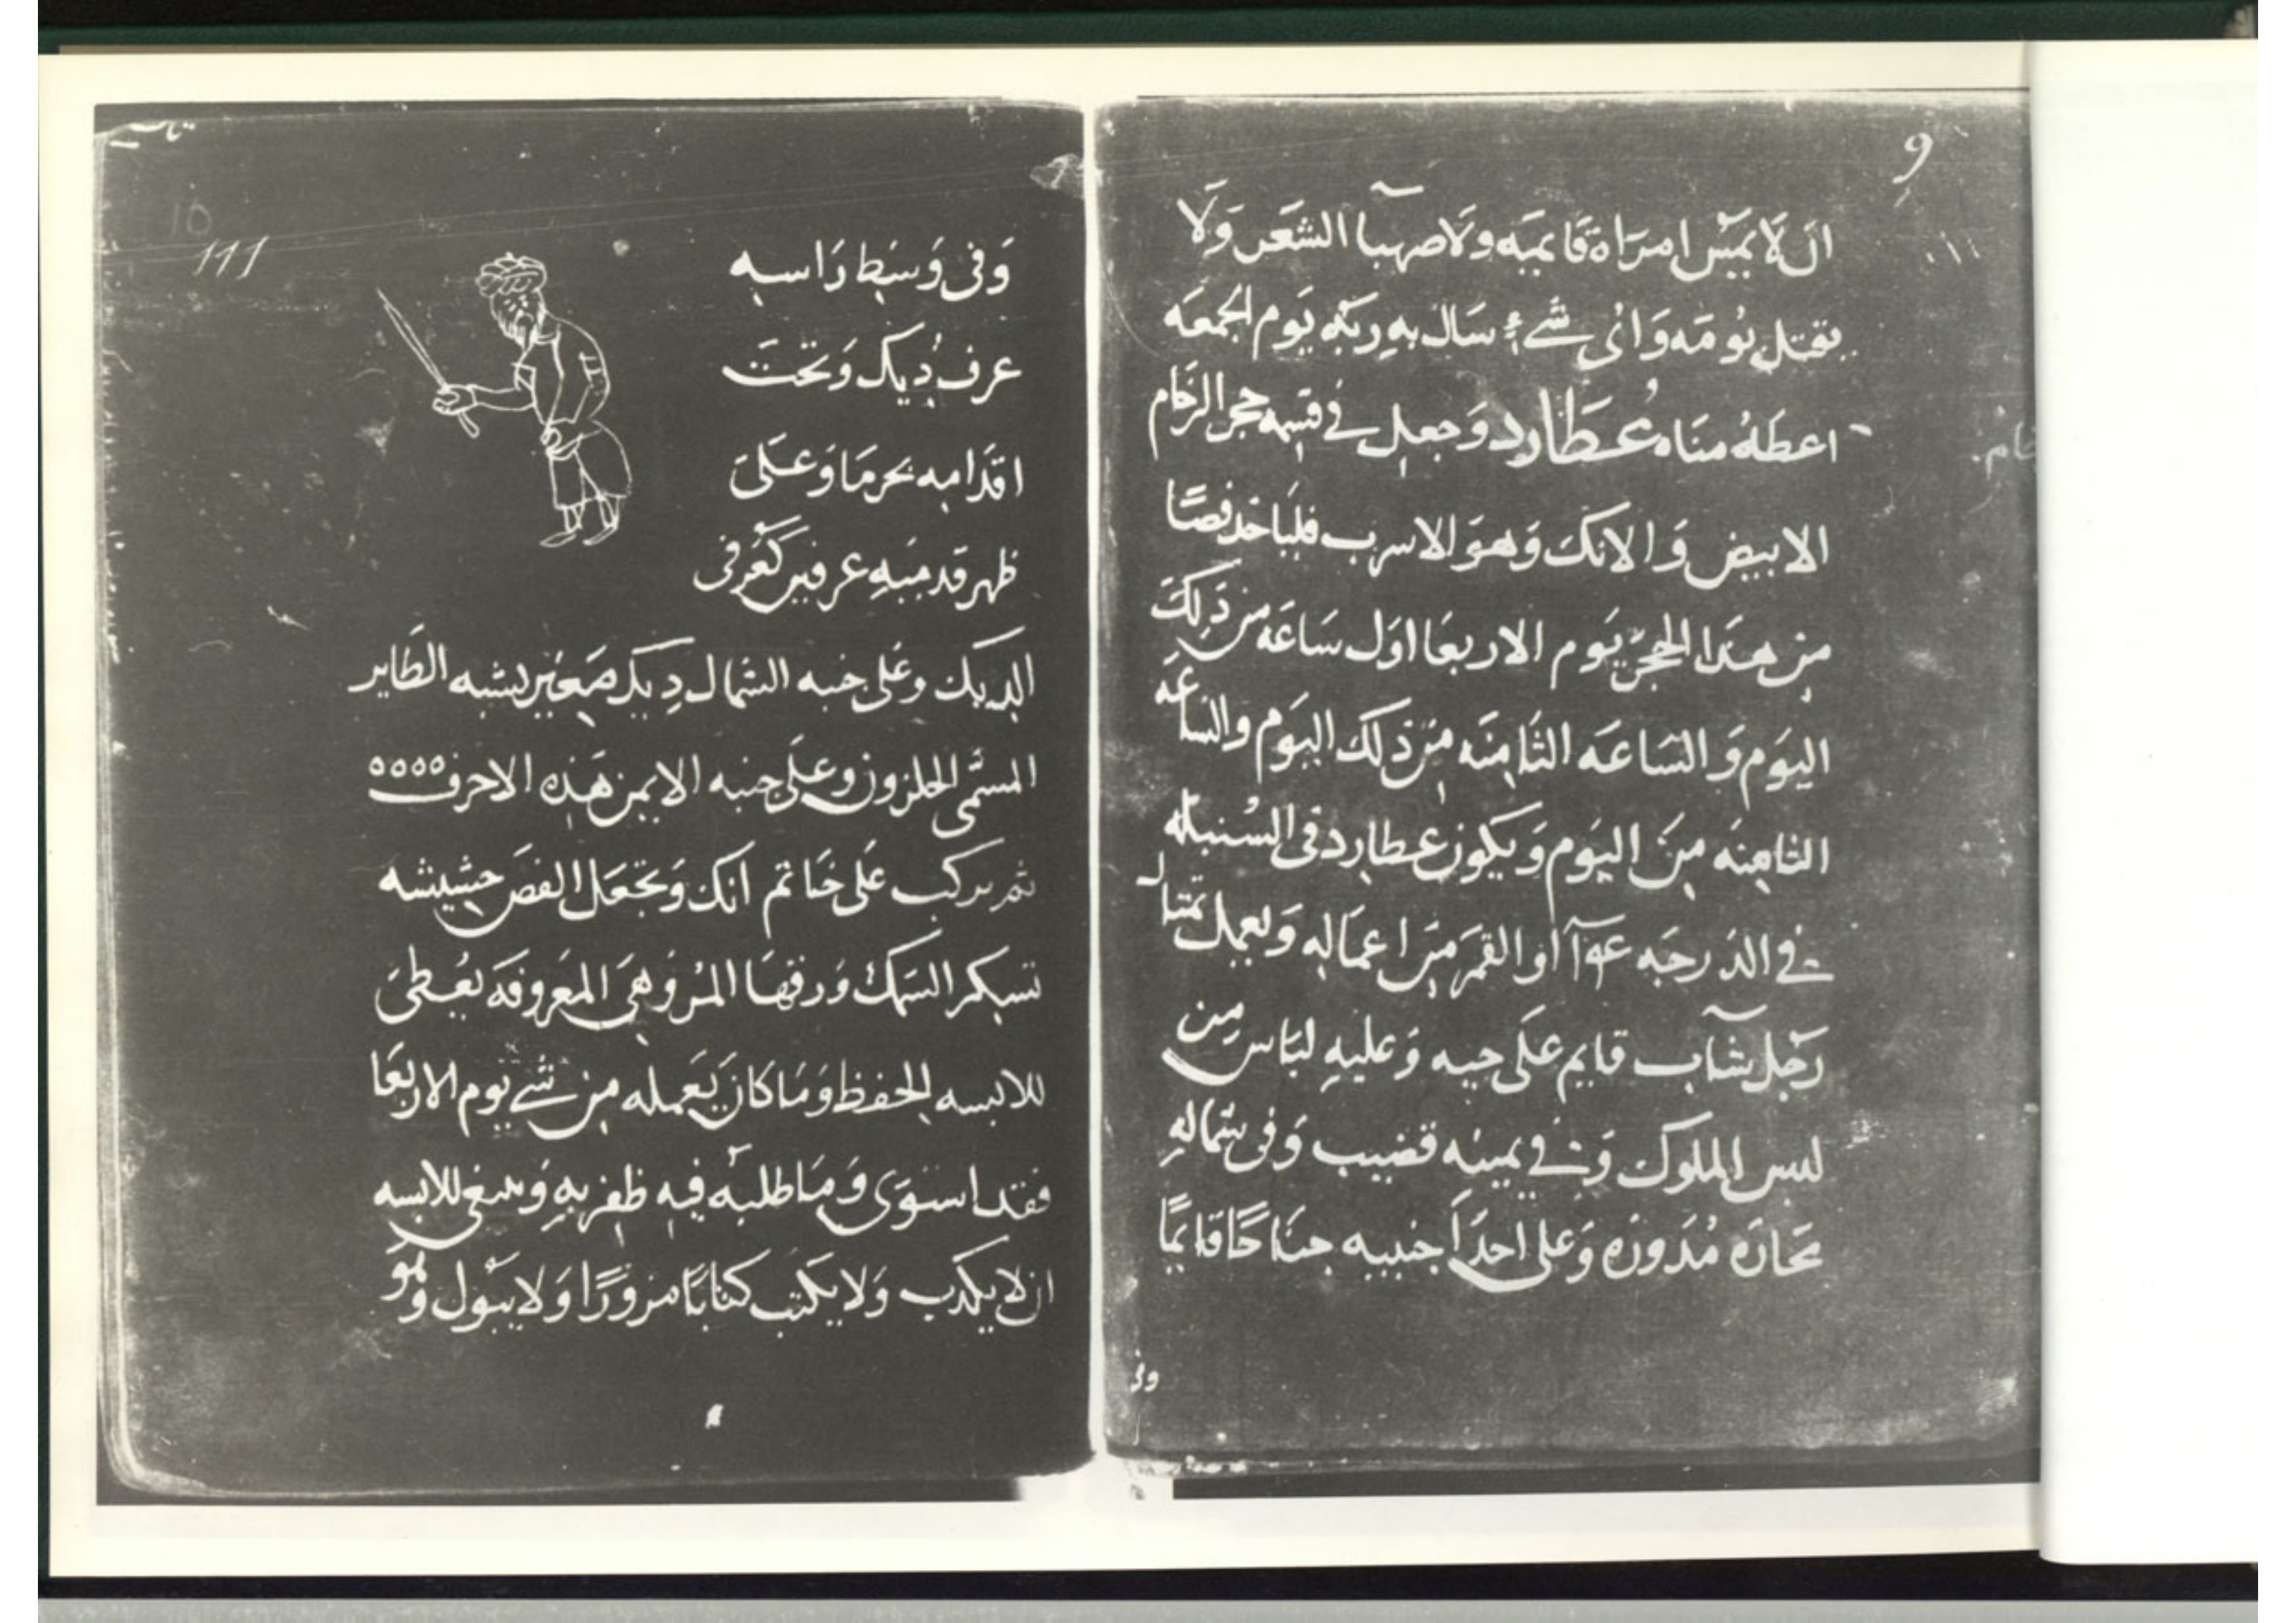 9
ان لا يمس امراة قايمه ولا صهبا الشعر ولا
يقتل بومه واى شىء سال به ربه يوم الجمعه
اعطاه مناه عطارد وجعل في قسمه حجر الرخام
الابيض والانك وهو الاسرب فلياخذ فصا
من هذا الحجر يوم الاربعا اول ساعه من ذلك
اليوم والساعه الثامنه من ذلك اليوم والساعه
الثامنه من اليوم ويكون عطارد فى السنبله
في الدرجه او القمر من اعماله ويعمل تمثال
رجل شاب قايم على جبه وعليه لباس من
لبس الملوك وفي يمينه قضيب وفى شماله
محاره مدوره وعلى احدا جنبيه جناحا قايما
وفى
10
111
وفى وسط راسه
عرف ديك وتحت
اقدامه وعلى
ظهر قدميه عرفين كعرفى
الديك وعلى جنبه الشمال ديك صغير يشبه الطاير
المسمى الحلزون وعلى جنبه الايمن هذه الاحرف ٥٥٥٥
ثم يركب على خاتم انك وتجعل الفص حشيشه
تسكر السمك ورقها المر وهى المعروفه يعطى
للابسه الحفظ وما كان يعمله من شي يوم الاربعا
فقد استوى وما طلبه فيه ظفر به وينبغى للابسه
ان لا يكذب ولا يكتب كتابا مزورا ولا يبول وهو